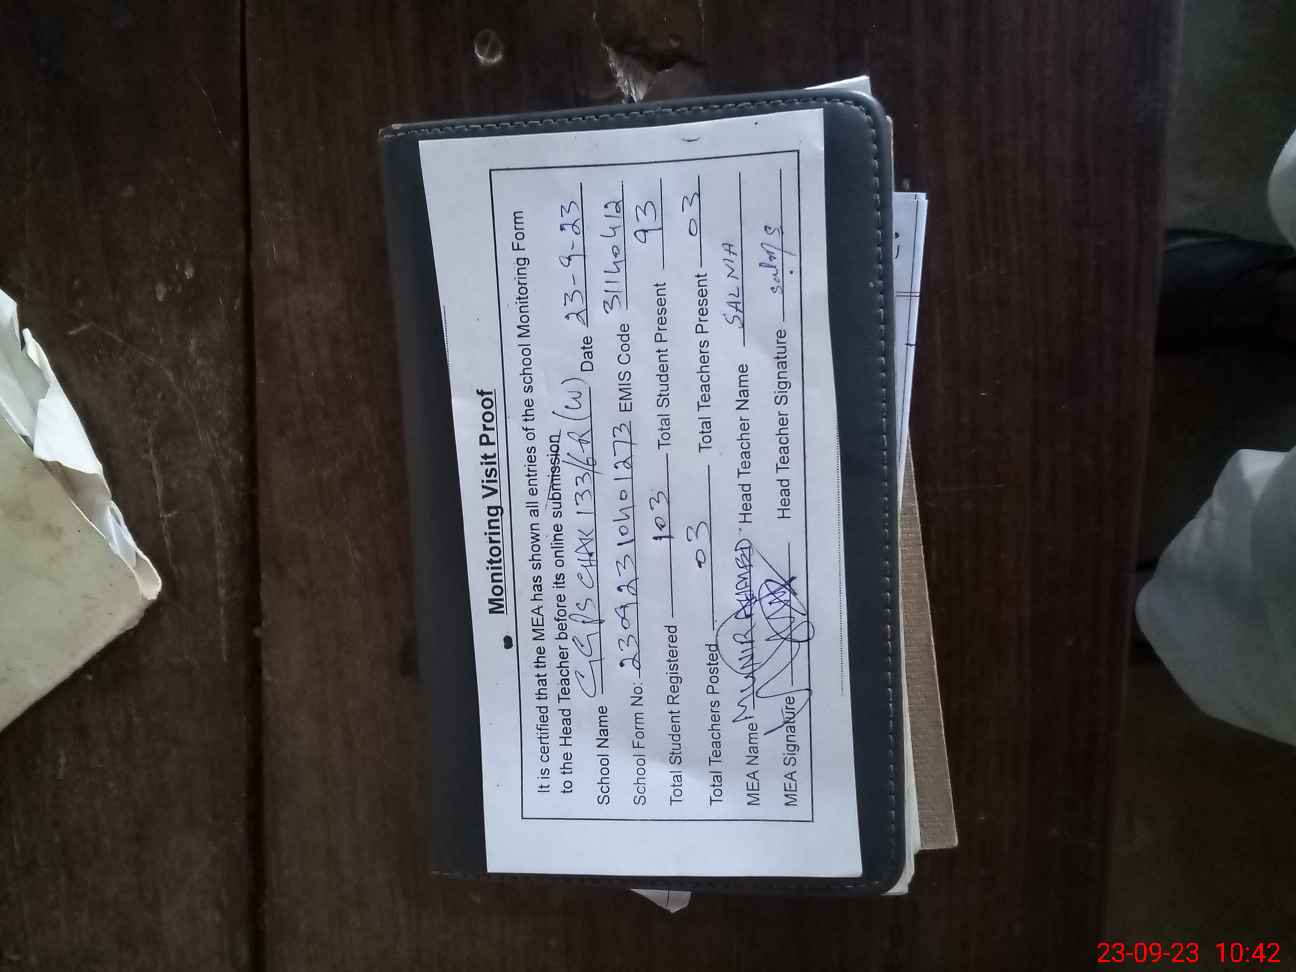 Monitoring Visit Proof
It is certified that the MEA has shown all entries of the school Monitoring Form
to the Head Teacher before its online submission
School Name GGPS CHAK 133/6R (W) Date 23-9-23
School Form No: 23092310401273 EMIS Code 31140412
Total Student Registered 103 Total Student Present 93
Total Teachers Posted 03 Total Teachers Present 03
MEA Name MUNIR AHMED Head Teacher Name SALMA
MEA Signature Head Teacher Signature
23-09-23 10:42